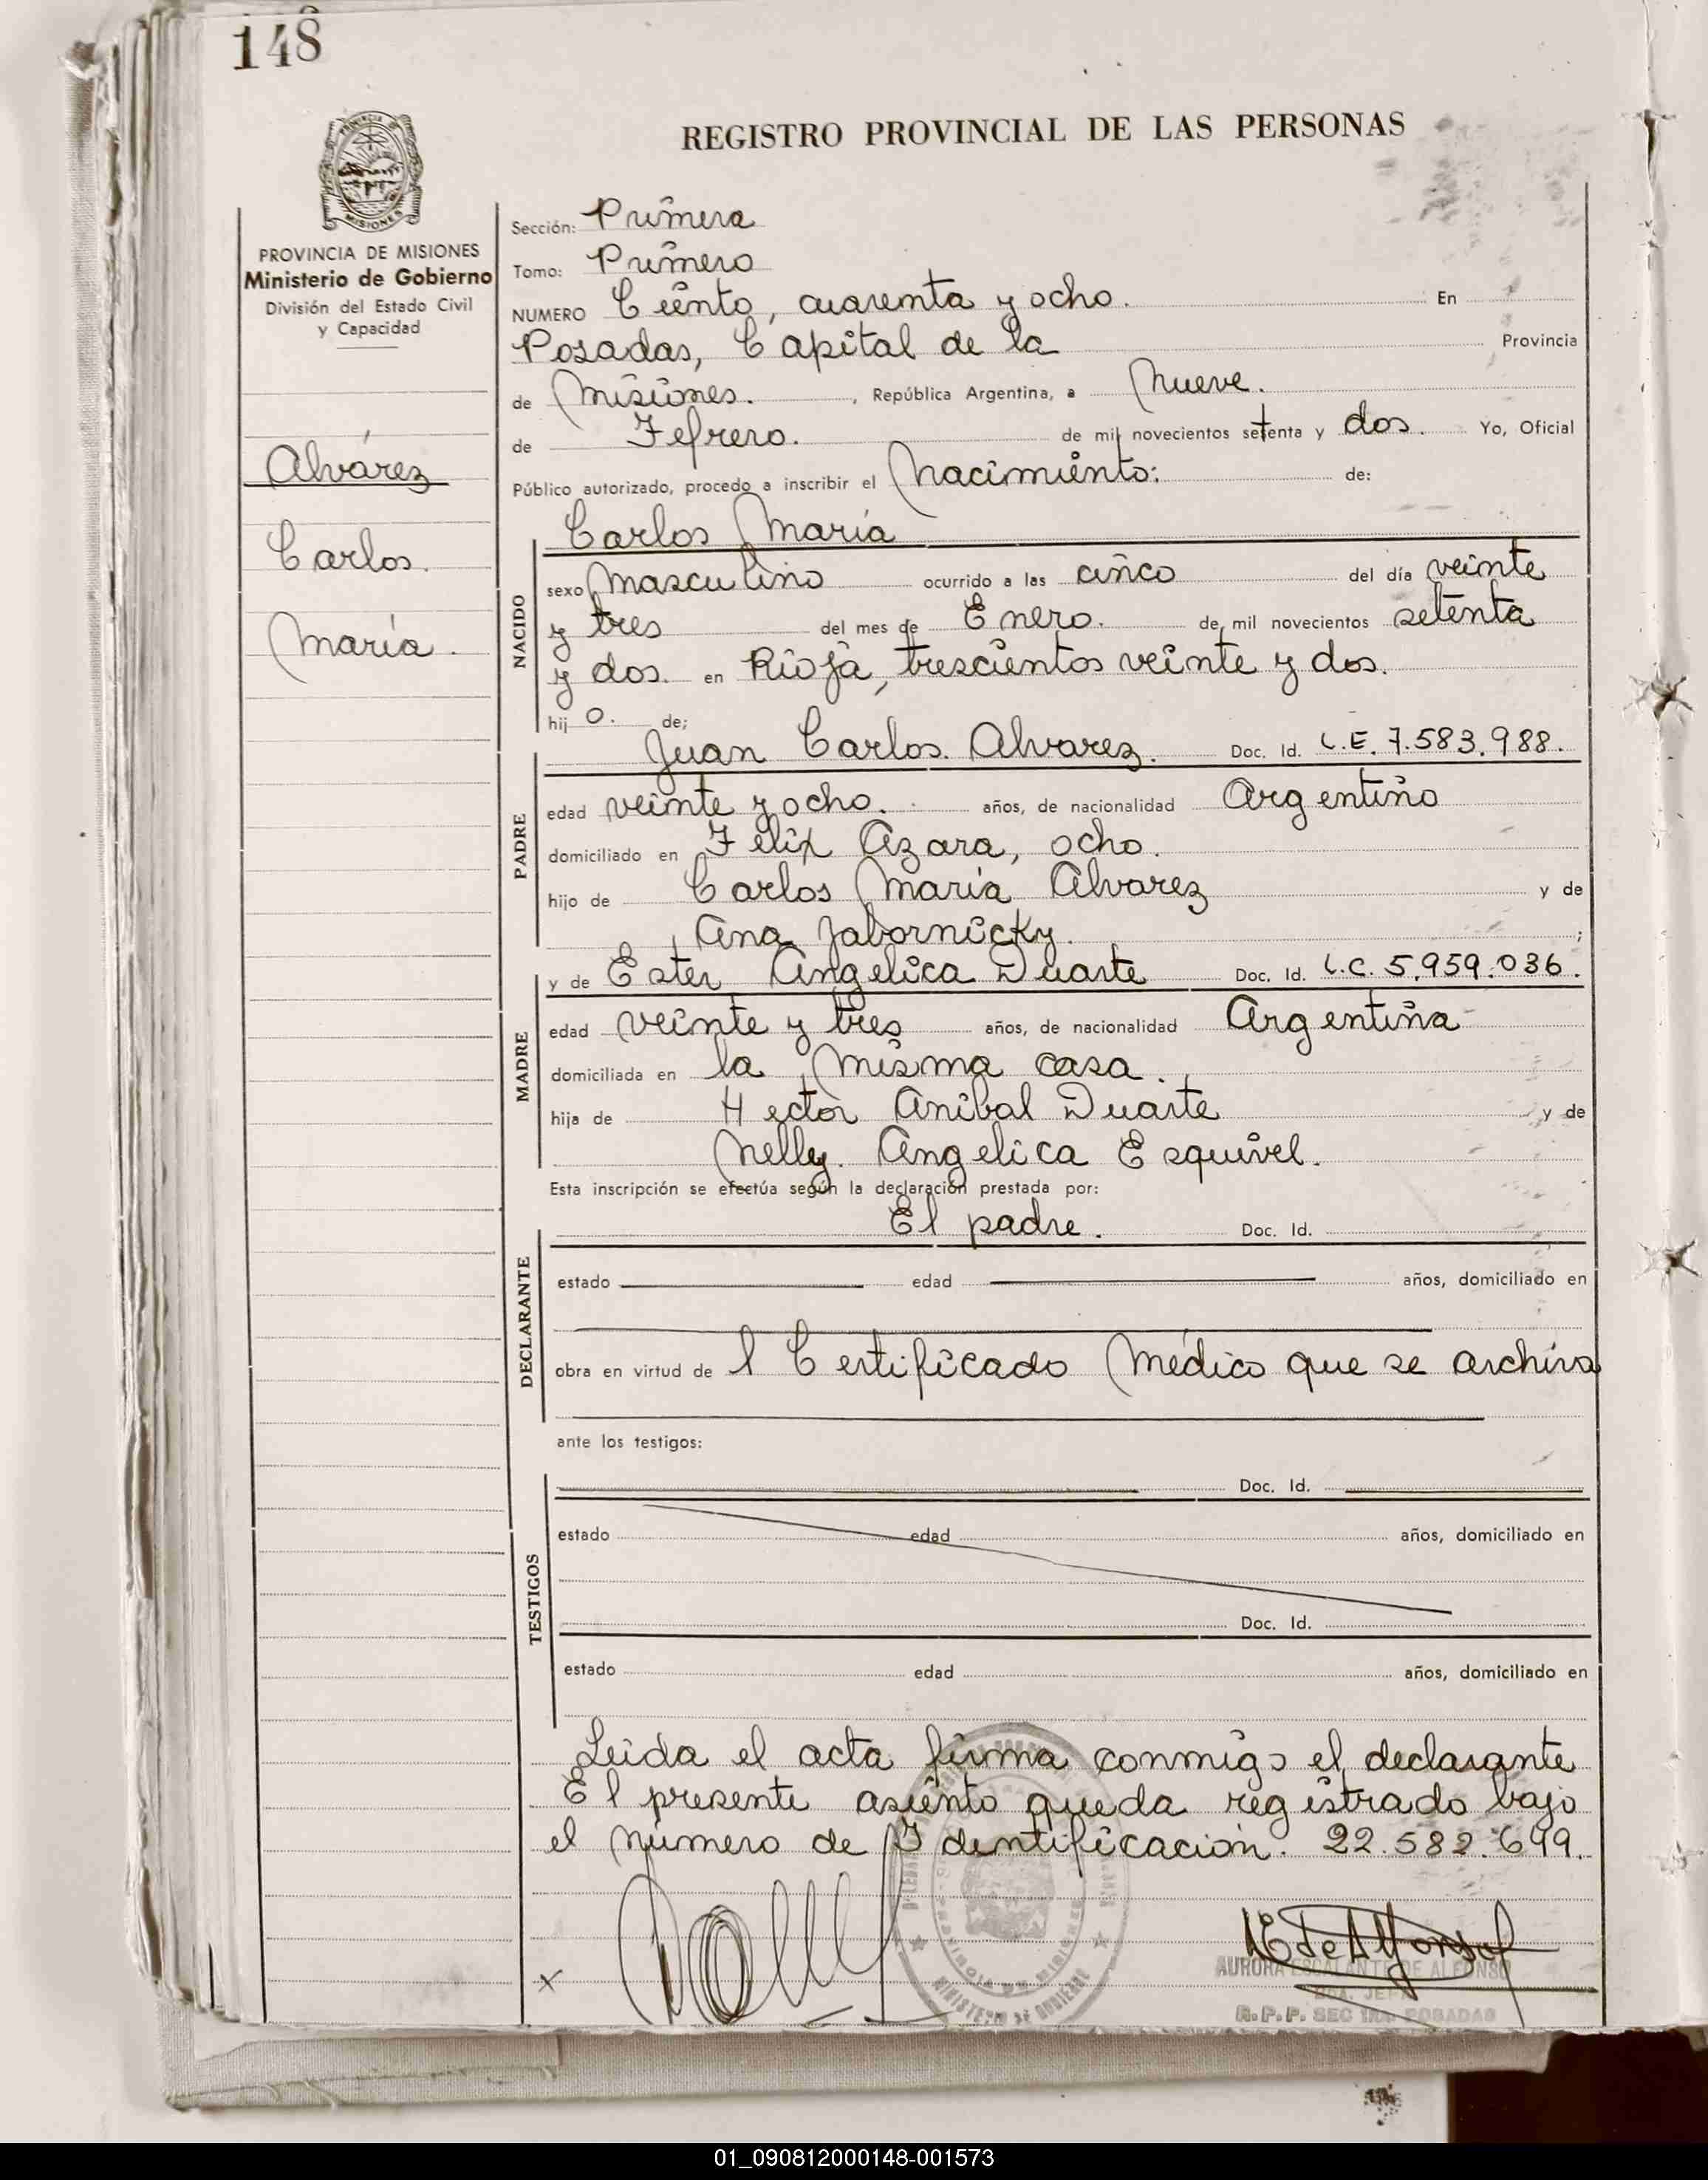 148
REGISTRO PROVINCIAL DE LAS PERSONAS
PROVINCIA DE MISIONES
Ministerio de Gobierno
División del Estado Civil
y Capacidad
Alvárez
Carlos.
María.
Sección: Primera
Tomo: Primero
NUMERO Ciento, cuarenta y ocho. En
Posadas, Capital de la Provincia
de Misiones. , República Argentina, a Nueve.
de Febrero. de mil novecientos setenta y dos. Yo, Oficial
Público autorizado, procedo a inscribir el Nacimiento: de:
Carlos María
NACIDO
sexo Masculino ocurrido a las cinco del día veinte
y tres del mes de Enero. de mil novecientos setenta
y dos. en Rioja, trescientos veinte y dos.
hij o. de;
Juan Carlos. Alvarez. Doc. Id. L.E. 7.583.988.
PADRE
edad veinte y ocho. años, de nacionalidad Argentino
domiciliado en Felix Azara, ocho.
hijo de Carlos María Alvarez y de
Ana Jabornicky. ;
y de Ester Angelica Duarte Doc. Id. L.C. 5.959.036.
MADRE
edad veinte y tres años, de nacionalidad Argentina
domiciliada en la misma casa.
hija de Hector Anibal Duarte y de
Nelly. Angelica Esquivel.
Esta inscripción se efectúa según la declaración prestada por:
El padre. Doc. Id.
DECLARANTE
estado edad años, domiciliado en
obra en virtud de l Certificado Médico que se archiva
ante los testigos:
Doc. Id.
TESTIGOS
estado edad años, domiciliado en
Doc. Id.
estado edad años, domiciliado en
Leida el acta firma conmigo el declarante
El presente asiento queda registrado bajo
el número de Identificación. 22.582.699.
MINISTERIO DE GOBIERNO
AURORA ESCALANTE DE ALFONSO
R.P.P. SEC 1RA. POSADAS
01_090812000148-001573